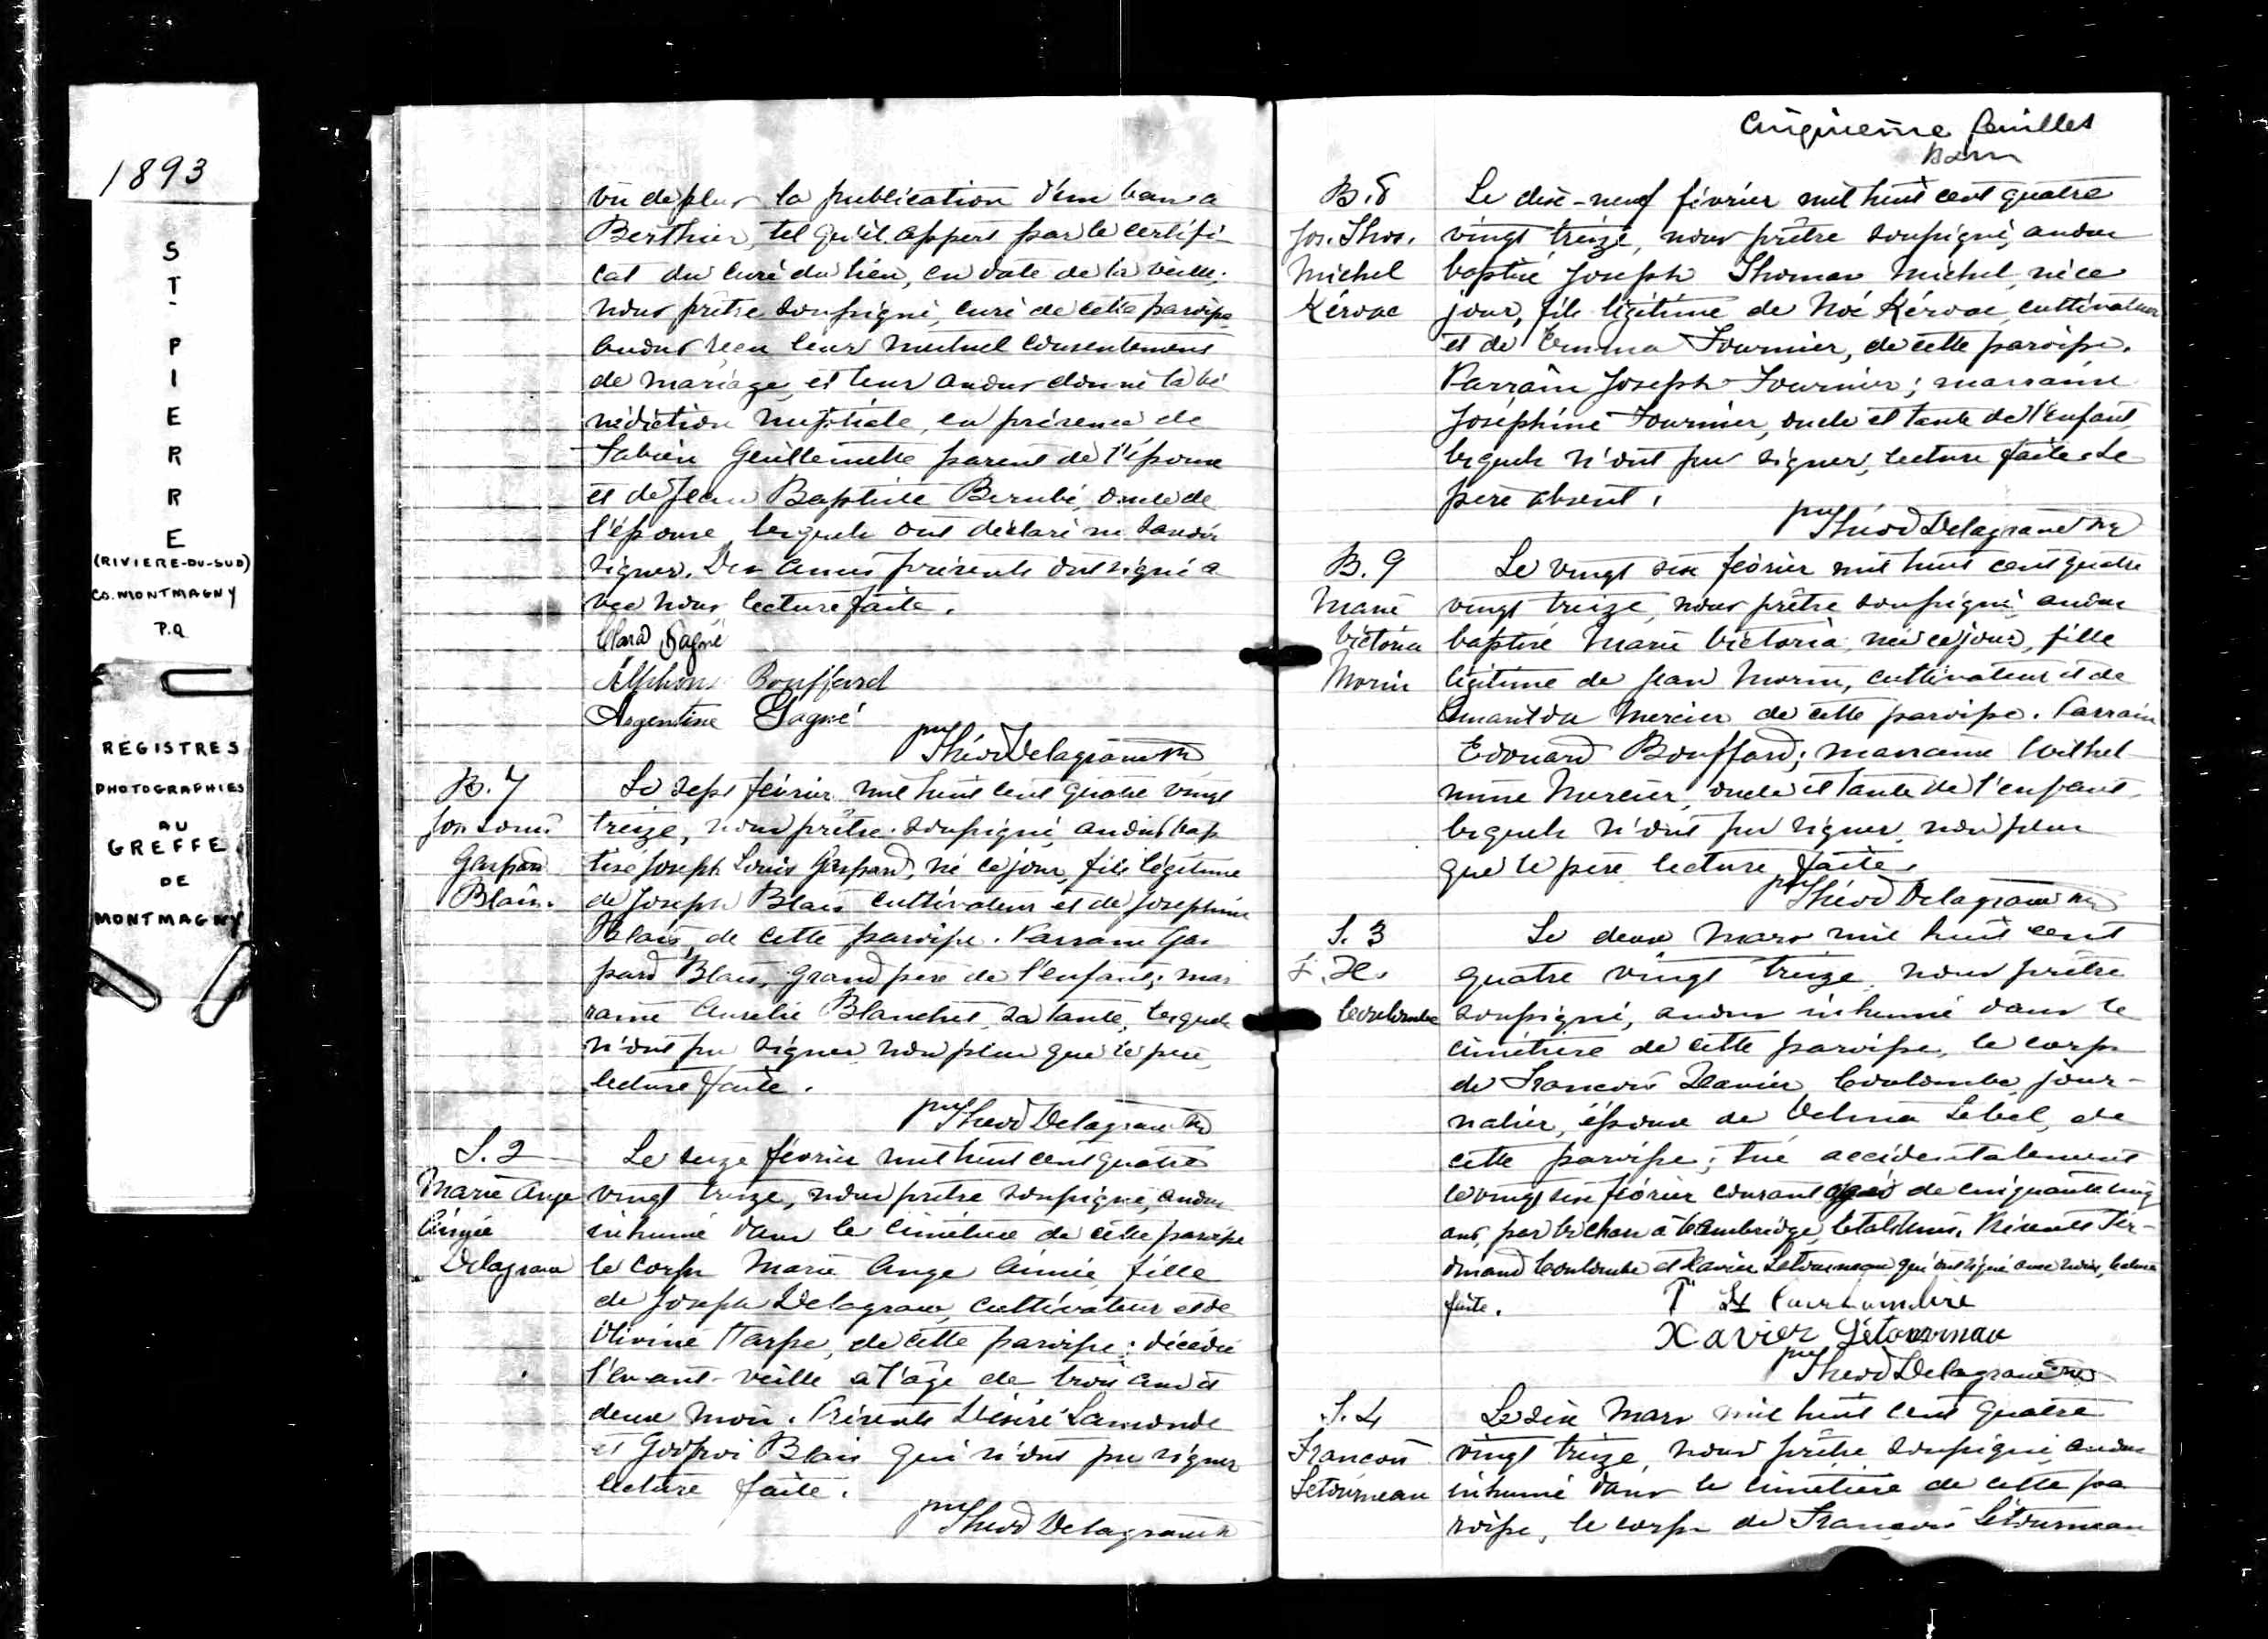 1893
ST
PIERRE
(RIVIERE-DU-SUD)
CO. MONTMAGNY
P.Q
REGISTRES
PHOTOGRAPHIES
AU
GREFFE
DE
MONTMAGNY
vu de plus la publication d'un ban à
Berthier, tel qu'il appert par le certifi
cat du curé du lieu, en date de la veille.
nous prêtre soussigné, curé de cette paroisse
avons reçu leur mutuel consentement
de mariage et leur avons donné la bé
nédiction nuptiale, en présence de
Fabien Guillemette parent de l'épouse
et de Jean Baptiste Berubé, oncle de
l'épouse lesquels ont déclaré ne savoir
signer. Des amis présents ont signé a
vec nous, lecture faite.
Clara Gagné
Alphonse Bouffard
Argentine Gagné
Théod Delagrave ptre
B. 7
Jos. Louis
Gaspard
Blais.
Le sept février mil huit cent quatre vingt
treize, nous prêtre soussigné, avons bap
tisé Joseph Louis Gaspard, né ce jour, fils légitime
de Joseph Blais cultivateur et de Josephine
Blais, de cette paroisse. Parrain Gas
pard Blais, grand père de l'enfant; mar
raine Aurelie Blanchet, sa tante, lesquels
n'ont pu signer non plus que le père,
lecture faite.
Théod Delagrave ptre
S. 2
Marie Ange
Aimée
Delagrave
Le seize février mil huit cent quatre
vingt treize, nous prêtre soussigné, avons
inhumé dans le cimetière de cette paroisse
le corps Marie Ange Aimée, fille
de Joseph Delagrave, cultivateur et de
de cette paroisse; décédée
l'avant-veille à l'âge de trois ans et
deux mois. Présents Désiré Lamonde
et Godfroi Blais qui n'ont pu signer
lecture faite.
Théod Delagrave ptre
Cinquieme feuillet
B. 8
Jos. Thos.
Michel
Kéroac
Le dix-neuf février mil huit cent quatre
vingt treize, nous prêtre soussigné, avons
baptisé Joseph Thomas Michel, né ce
jour, fils légitime de Noé Kéroac, cultivateur
et de Emma Fournier, de cette paroisse.
Parrain Joseph Fournier; marraine
Joséphine Fournier, oncle et tante de l'enfant
lesquels n'ont pu signer, lecture faite. Le
père absent.
Théod Delagrave ptre
B. 9
Marie
Victoria
Morin
Le vingt six février mil huit cent quatre
vingt treize, nous prêtre soussigné avons
baptisé Marie Victoria, née ce jour, fille
légitime de Jean Morin, cultivateur et de
Amanda Mercier de cette paroisse. Parrain
Edouard Bouffard; marraine Wilhel
mine Mercier, oncle et tante de l'enfant,
lesquels n'ont pu signer, non plus
que le père lecture faite.
Théod Delagrave ptre
S. 3
F. X.
Coulombe
Le deux Mars mil huit cent
quatre vingt treize, nous prêtre
soussigné, avons inhumé dans le
cimétière de cette paroisse, le corps
de Francois Xavier Coulombe, jour-
nalier, époux de Velma Lebel, de
cette paroisse; tué accidentalement
le vingt six février courant agé de cinquante cinq
ans, par les chars à Cambridge, Etats Unis. Présents Fer-
dinand Coulombe et Xavier Letourneau qui ont signé avec nous, lecture
faite.
Xavier Létourneau
Théod Delagrave ptre
S. 4
Francois
Letourneau
Le six Mars mil huit cent quatre
vingt treize, nous prêtre soussigné, avons
inhumé dans le cimetière de cette pa
roisse, le corps de Francois Létourneau